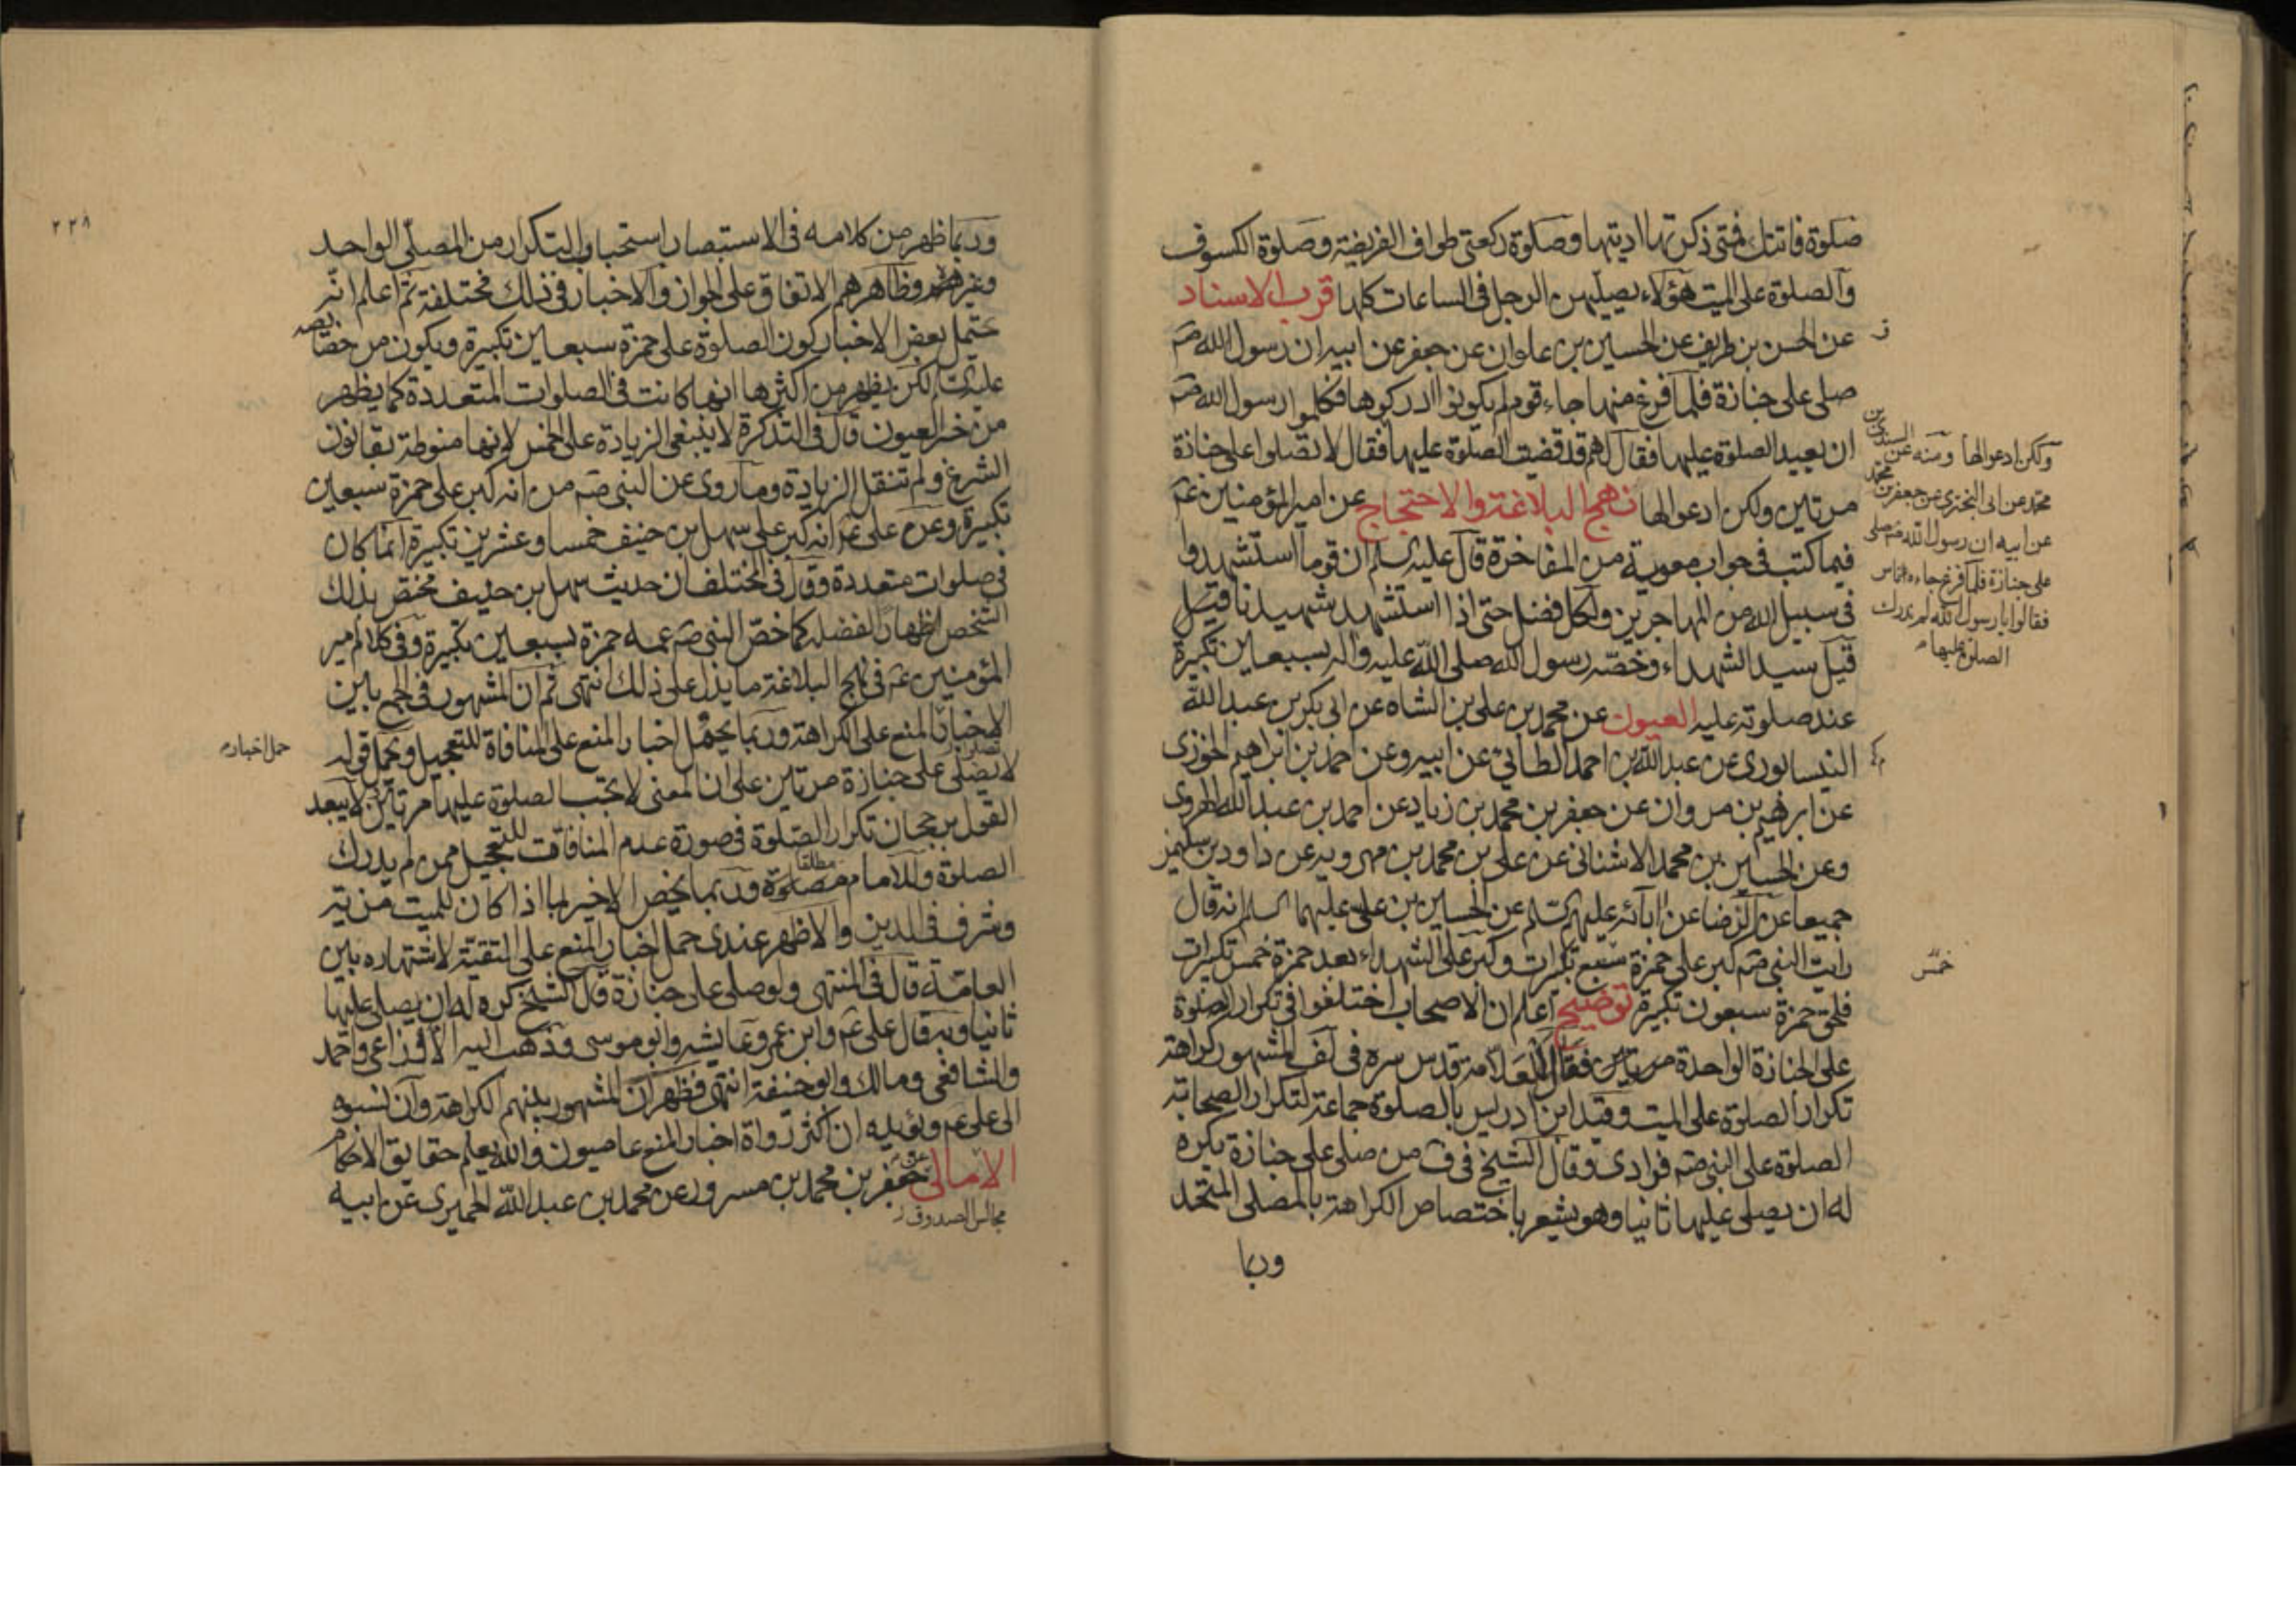 صلوة فاتتك فمتى ذكرتها اديتها وصلوة ركعتي طواف الفريضة وصلوة الكسوف
والصلوة على الميت هؤلاء يصليهن الرجل في الساعات كلها قرب الاسناد
عن الحسن بن ظريف عن الحسين بن علوان عن جعفر عن ابيه ان رسول الله صم
صلى على جنازة فلما فرغ منها جاء قوم لم يكونوا ادركوها فكلموا رسول الله صم
ان يعيد الصلوة عليها فقال لهم قد قضيت الصلوة عليها فقال لا تصلوا على جنازة
مرتين ولكن ادعوا لها نهج البلاغة والاحتجاج عن امير المؤمنين عم
فيما كتب في جواب معوية من المفاخرة قال عليه السلم ان قوما استشهدوا
في سبيل الله من المهاجرين ولكل فضل حتى اذا استشهد شهيدنا قيل
قيل سيد الشهداء وخصه رسول الله صلى الله عليه واله بسبعين تكبيرة
عند صلوته عليه العيون عن محمد بن علي بن الشاه عن ابي بكر بن عبد الله
النيسابوري عن عبد الله بن احمد الطائي عن ابيه وعن احمد بن ابراهيم الخوزي
عن ابرهيم بن مروان عن جعفر بن محمد بن زياد عن احمد بن عبد الله الهروي
وعن الحسين بن محمد الاشناني عن علي بن محمد بن مهرويه عن داود بن سليمن
جميعا عن الرضا عن ابائه عليهم السلم عن الحسين بن علي عليهما السلم انه قال
رايت النبي صم كبر على حمزة سبع تكبيرات وكبر على الشهداء بعد حمزة خمس تكبيرات
فلحق حمزة سبعون تكبيرة توضيح اعلم ان الاصحاب اختلفوا في تكرار الصلوة
على الجنازة الواحدة مرتين فقال العلامة قدس سره في لف المشهور كراهة
تكرار الصلوة على الميت وقيد ابن ادريس بالصلوة جماعة لتكرار الصحابة
الصلوة على النبي صم فرادى وقال الشيخ في ف من صلى على جنازة يكره
له ان يصلي عليها ثانيا وهو يشعر باختصاص الكراهة بالمصلي المتحد
وربما
ولكن ادعوا لها ومنه عن السندي بن
محمد عن ابي البختري عن جعفر بن محمد
عن ابيه ان رسول الله صم صلى
على جنازة فلما فرغ جاءه اناس
فقالوا يا رسول الله لم ندرك
الصلوة عليها
خمس
٢٢٨
وربما ظهر من كلامه في الاستبصار استحباب التكرار من المصلي الواحد
وغيره وظاهرهم الاتفاق على الجواز والاخبار في ذلك مختلفة ثم اعلم انه
يحتمل بعض الاخبار كون الصلوة على حمزة سبعين تكبيرة ويكون من خصائصه
عليه السلم لكن يظهر من اكثرها انها كانت في الصلوات المتعددة كما يظهر
من خبر العيون قال في التذكرة لا ينبغي الزيادة على الخمس لانها منوطة بقانون
الشرع ولم تنقل الزيادة وما روي عن النبي صم من انه كبر على حمزة سبعين
تكبيرة وعن علي عم انه كبر على سهل بن حنيف خمسا وعشرين تكبيرة انما كان
في صلوات متعددة وقال في المختلف ان حديث سهل بن حنيف مختص بذلك
الشخص اظهارا لفضله كما خص النبي صم عمه حمزة بسبعين تكبيرة وفي كلام امير
المؤمنين عم في نهج البلاغة ما يدل على ذلك انتهى ثم ان المشهور في الجمع بين
الاخبار المنع على الكراهة وربما يحمل اخبار المنع على المنافاة للتعجيل ويحمل قوله
لا يصلى على جنازة مرتين على ان المعنى لا يجب الصلوة عليها مرتين لا يبعد
القول برجحان تكرار الصلوة في صورة عدم المنافات للتعجيل ممن لم يدرك
الصلوة وللامام مطلقا وربما يخص الاخير بما اذا كان للميت مزية
وشرف في الدين والاظهر عندي حمل اخبار المنع على التقية لاشتهاره بين
العامة قال في المنتهى ولو صلى على جنازة قال الشيخ كره له ان يصلي عليها
ثانيا وبه قال علي عم وابن عمر وعايشه وابو موسى وذهب اليه الاوزاعي واحمد
والشافعي ومالك وابو حنيفة انتهى فظهر ان المشهور بينهم الكراهة وان نسبوه
الى علي عم ويؤيده ان اكثر رواة اخبار المنع عاميون والله يعلم حقايق الاحكام
الامالي عن جعفر بن محمد بن مسرور عن محمد بن عبد الله الحميري عن ابيه
مجالس الصدوق
حمل اخبار